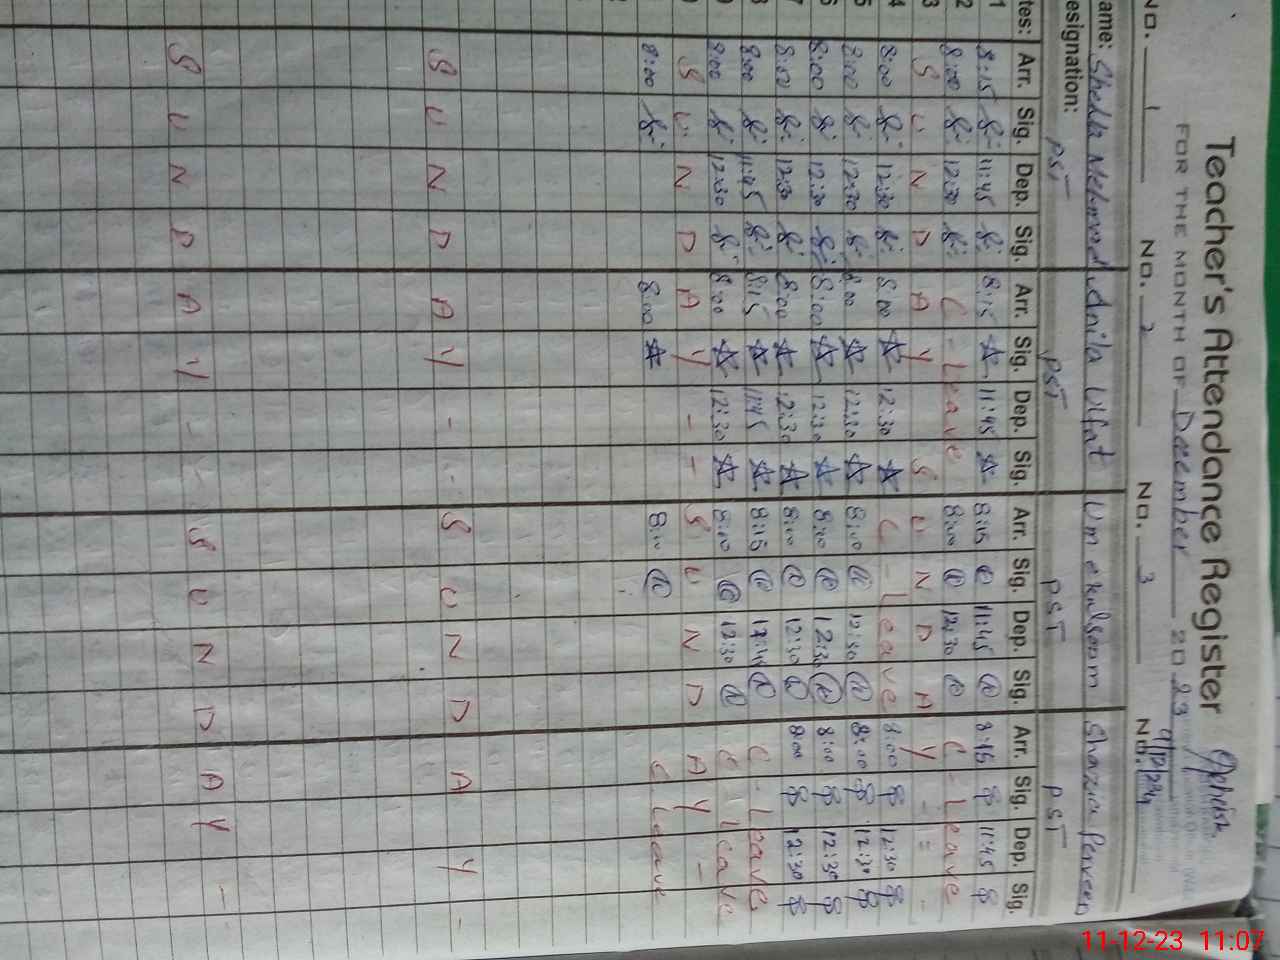 Teacher's Attendance Register
FOR THE MONTH OF December 2023
No. 1 No. 2 No. 3 No.
ame: Sheeba Mehmood Anila Ulfat Um e kulsoom Shazia Perveen
esignation: PST PST PST PST
tes: Arr. Sig. Dep. Sig. Arr. Sig. Dep. Sig. Arr. Sig. Dep. Sig. Arr. Sig. Dep. Sig.
1 8:15 11:45 8:15 11:45 8:15 11:45 8:15 11:45
2 8:00 12:30 C - Leave 8:00 12:30 C - Leave
3 S U N D A Y S U N D A Y - =
4 8:00 12:30 8:00 12:30 C - Leave 8:00 12:30
5 8:00 12:30 8:00 12:30 8:00 12:30 8:00 12:30
6 8:00 12:30 8:00 12:30 8:00 12:30 8:00 12:30
7 8:00 12:30 8:00 12:30 8:00 12:30 8:00 12:30
8 8:00 11:45 8:15 11:45 8:15 11:45 C - Leave
9 8:00 12:30 8:00 12:30 8:00 12:30 C Leave
S U N D A Y - - S U N D A Y -
8:00 8:00 8:00 C Leave
S U N D A Y - - S U N D A Y -
S U N D A Y - - S U N D A Y -
11-12-23 11:07